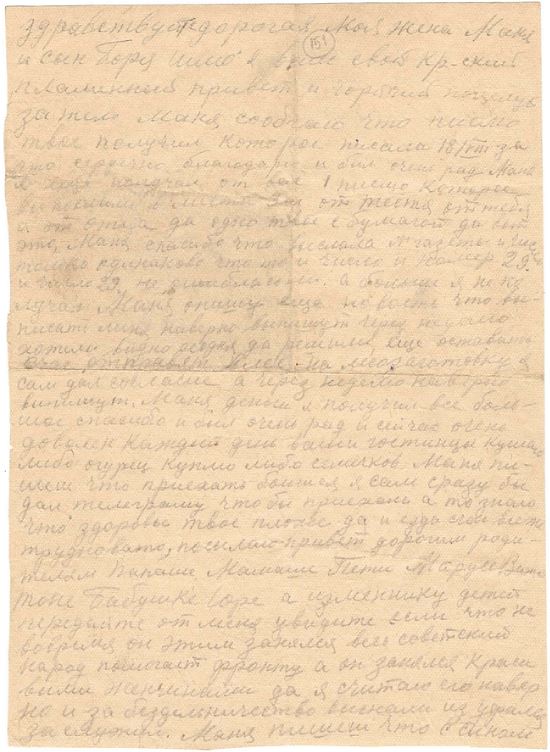 здравствуйте дорогая моя жена Маня
151
и сын Боря шлю я вам свой кр-ский
пламенный привет и горячий поцелуй
затем Маня сообщаю что письмо
твое получил которое писала 18/VIII за
что сердечно благодарю и был очен рад Маня
я еще получал от вас 1 письмо которое
вы посылали от тестя от тебя
и от отца да одно с бумагой да вот
это, Маня спасибо что выслала № газеты и
только одинаково что то и число и номер 29
и число 29 не ошиблась ли. а больше я не по
лучал Маня опишу еще новость что вы-
писать меня наверно выпишут через неделю
хотели видно сегодня да решили еще оставить
отправят на лесозаготовку я
сам дал согласие а через неделю наверно
выпишут. Маня деньги я получил все боль-
шое спасибо и был очен рад и сейчас очено
доволен каждый ден ваши гостинцы кушаю
либо огурец куплю либо семечков. Маня пи-
шеш что приехать боишся я сам сразу бы
дал телеграму что бы приехала а то знаю
что здоровье твое плохое да и езда
трудновато, посылаю привет дорогим роди-
телям папаше мамаше Пети Марусе Вити
Тоне Бабушке Боре а изменнику детей
передайте от меня увидите если что не
вовремя он этим занялся весь советский
народ помогает фронту а он занялся краси
выми женчинами да я считаю его навер
но и за бездельничество выслали из урала
заслужил. Маня пишеш что с сыном